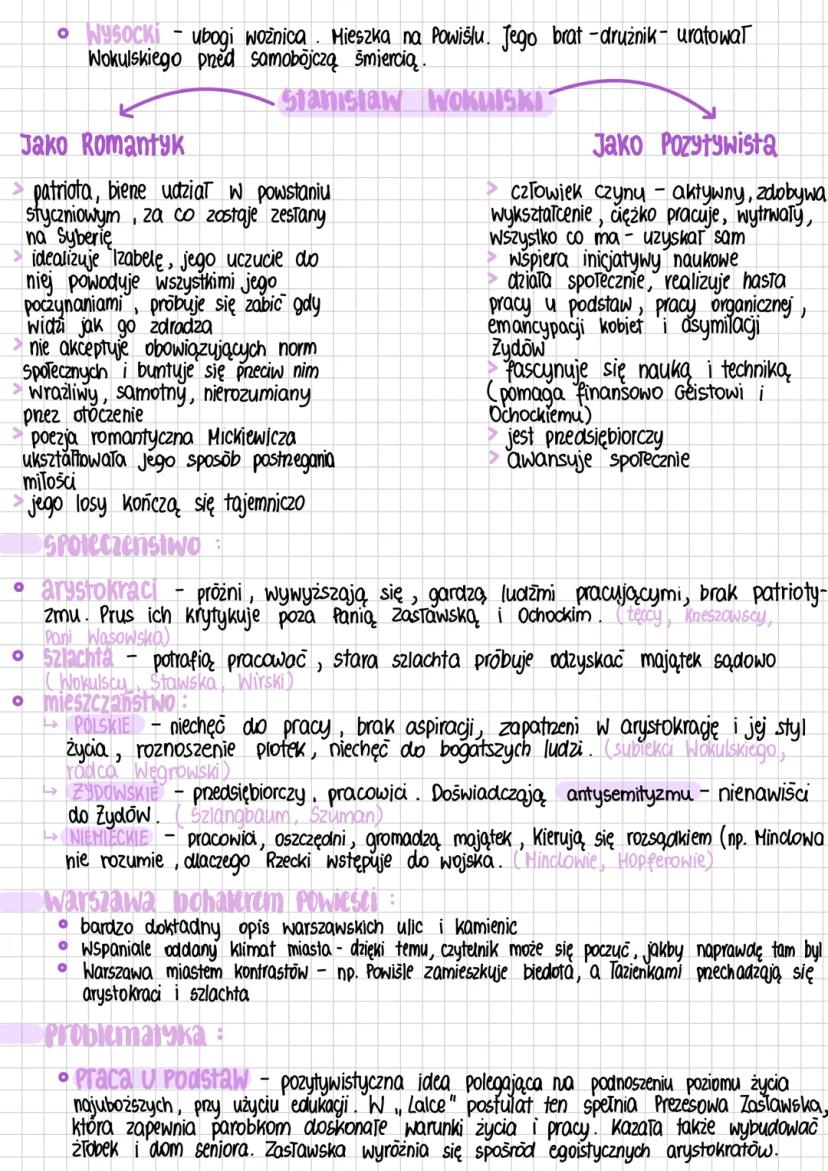 Wysocki - ubogi woźnica. Mieszka na Powiślu. Jego brat - drużnik - uratował
Wokulskiego przed samobójczą śmiercią.
Stanisław Wokulski
Jako Romantyk
> patriota, bierze udział w powstaniu
styczniowym, za co zostaje zesłany
na Syberię
> idealizuje Izabelę, jego uczucie do
niej powoduje wszystkimi jego
poczynaniami, próbuje się zabić gdy
widzi jak go zdradza
> nie akceptuje obowiązujących norm
społecznych i buntuje się przeciw nim
> wrażliwy, samotny, nierozumiany
przez otoczenie
> poezja romantyczna Mickiewicza
ukształtowała jego sposób postrzegania
miłości
> jego losy kończą się tajemniczo
Jako Pozytywista
> człowiek czynu - aktywny, zdobywa
wykształcenie, ciężko pracuje, wytrwały,
wszystko co ma - uzyskał sam
> wspiera inicjatywy naukowe
> działa społecznie, realizuje hasła
pracy u podstaw, pracy organicznej,
emancypacji kobiet i asymilacji
Żydów
> fascynuje się nauką i techniką
(pomaga finansowo Geistowi i
Ochockiemu)
> jest przedsiębiorczy
> awansuje społecznie
społeczeństwo:
arystokraci - próżni, wywyższają się, gardzą ludźmi pracującymi, brak patrioty-
zmu. Prus ich krytykuje poza Panią Zasławską i Ochockim. (Łęccy, Krzeszowscy,
Pani Wąsowska)
szlachta - potrafią pracować, stara szlachta próbuje odzyskać majątek sądowo
(Wokulscy, Stawska, Wirski)
mieszczaństwo:
↳ POLSKIE - niechęć do pracy, brak aspiracji, zapatrzeni w arystokrację i jej styl
życia, roznoszenie plotek, niechęć do bogatszych ludzi. (subiekci Wokulskiego,
radca Węgrowski)
↳ ŻYDOWSKIE - przedsiębiorczy, pracowici. Doświadczają antysemityzmu - nienawiści
do Żydów. (Szlangbaum, Szuman)
↳ NIEMIECKIE - pracowici, oszczędni, gromadzą majątek, kierują się rozsądkiem (np. Minclowa
nie rozumie, dlaczego Rzecki wstępuje do wojska. (Minclowie, Hopferowie)
Warszawa bohaterem powieści:
bardzo dokładny opis warszawskich ulic i kamienic
Wspaniale oddany klimat miasta - dzięki temu, czytelnik może się poczuć, jakby naprawdę tam był
Warszawa miastem kontrastów - np. Powiśle zamieszkuje biedota, a Łazienkami przechadzają się
arystokraci i szlachta
Problematyka:
Praca u podstaw - pozytywistyczna idea polegająca na podnoszeniu poziomu życia
najuboższych, przy użyciu edukacji. W „Lalce" postulat ten spełnia Prezesowa Zasławska,
która zapewnia parobkom doskonałe warunki życia i pracy. Kazała także wybudować
żłobek i dom seniora. Zasławska wyróżnia się spośród egoistycznych arystokratów.